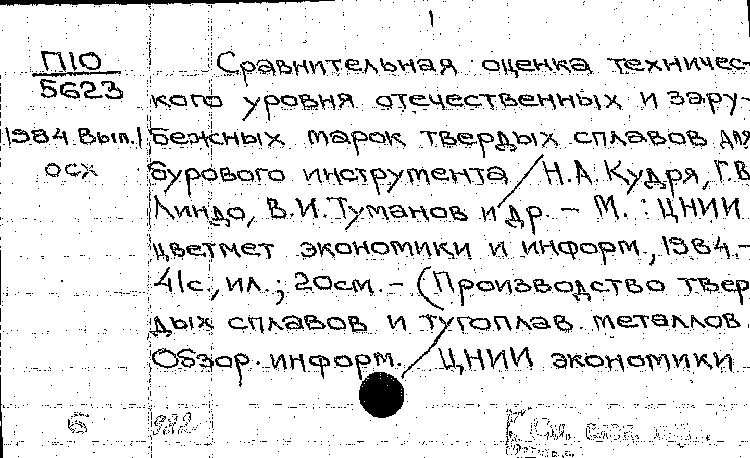 1
П10
5623
1984 Вып.1
осх
Сравнительная оценка техничес-
кого уровня отечественных и зару-
бежных марок твердых сплавов для
бурового инструмента / Н.А. Кудря, Г.В.
Линдо, В.И. Туманов и др. – М. : ЦНИИ
цветмет экономики и информ., 1984.–
41с., ил.; 20см. – (Производство твер
дых сплавов и тугоплав. металлов.
Обзор. информ. / ЦНИИ экономики
Б
982
См.